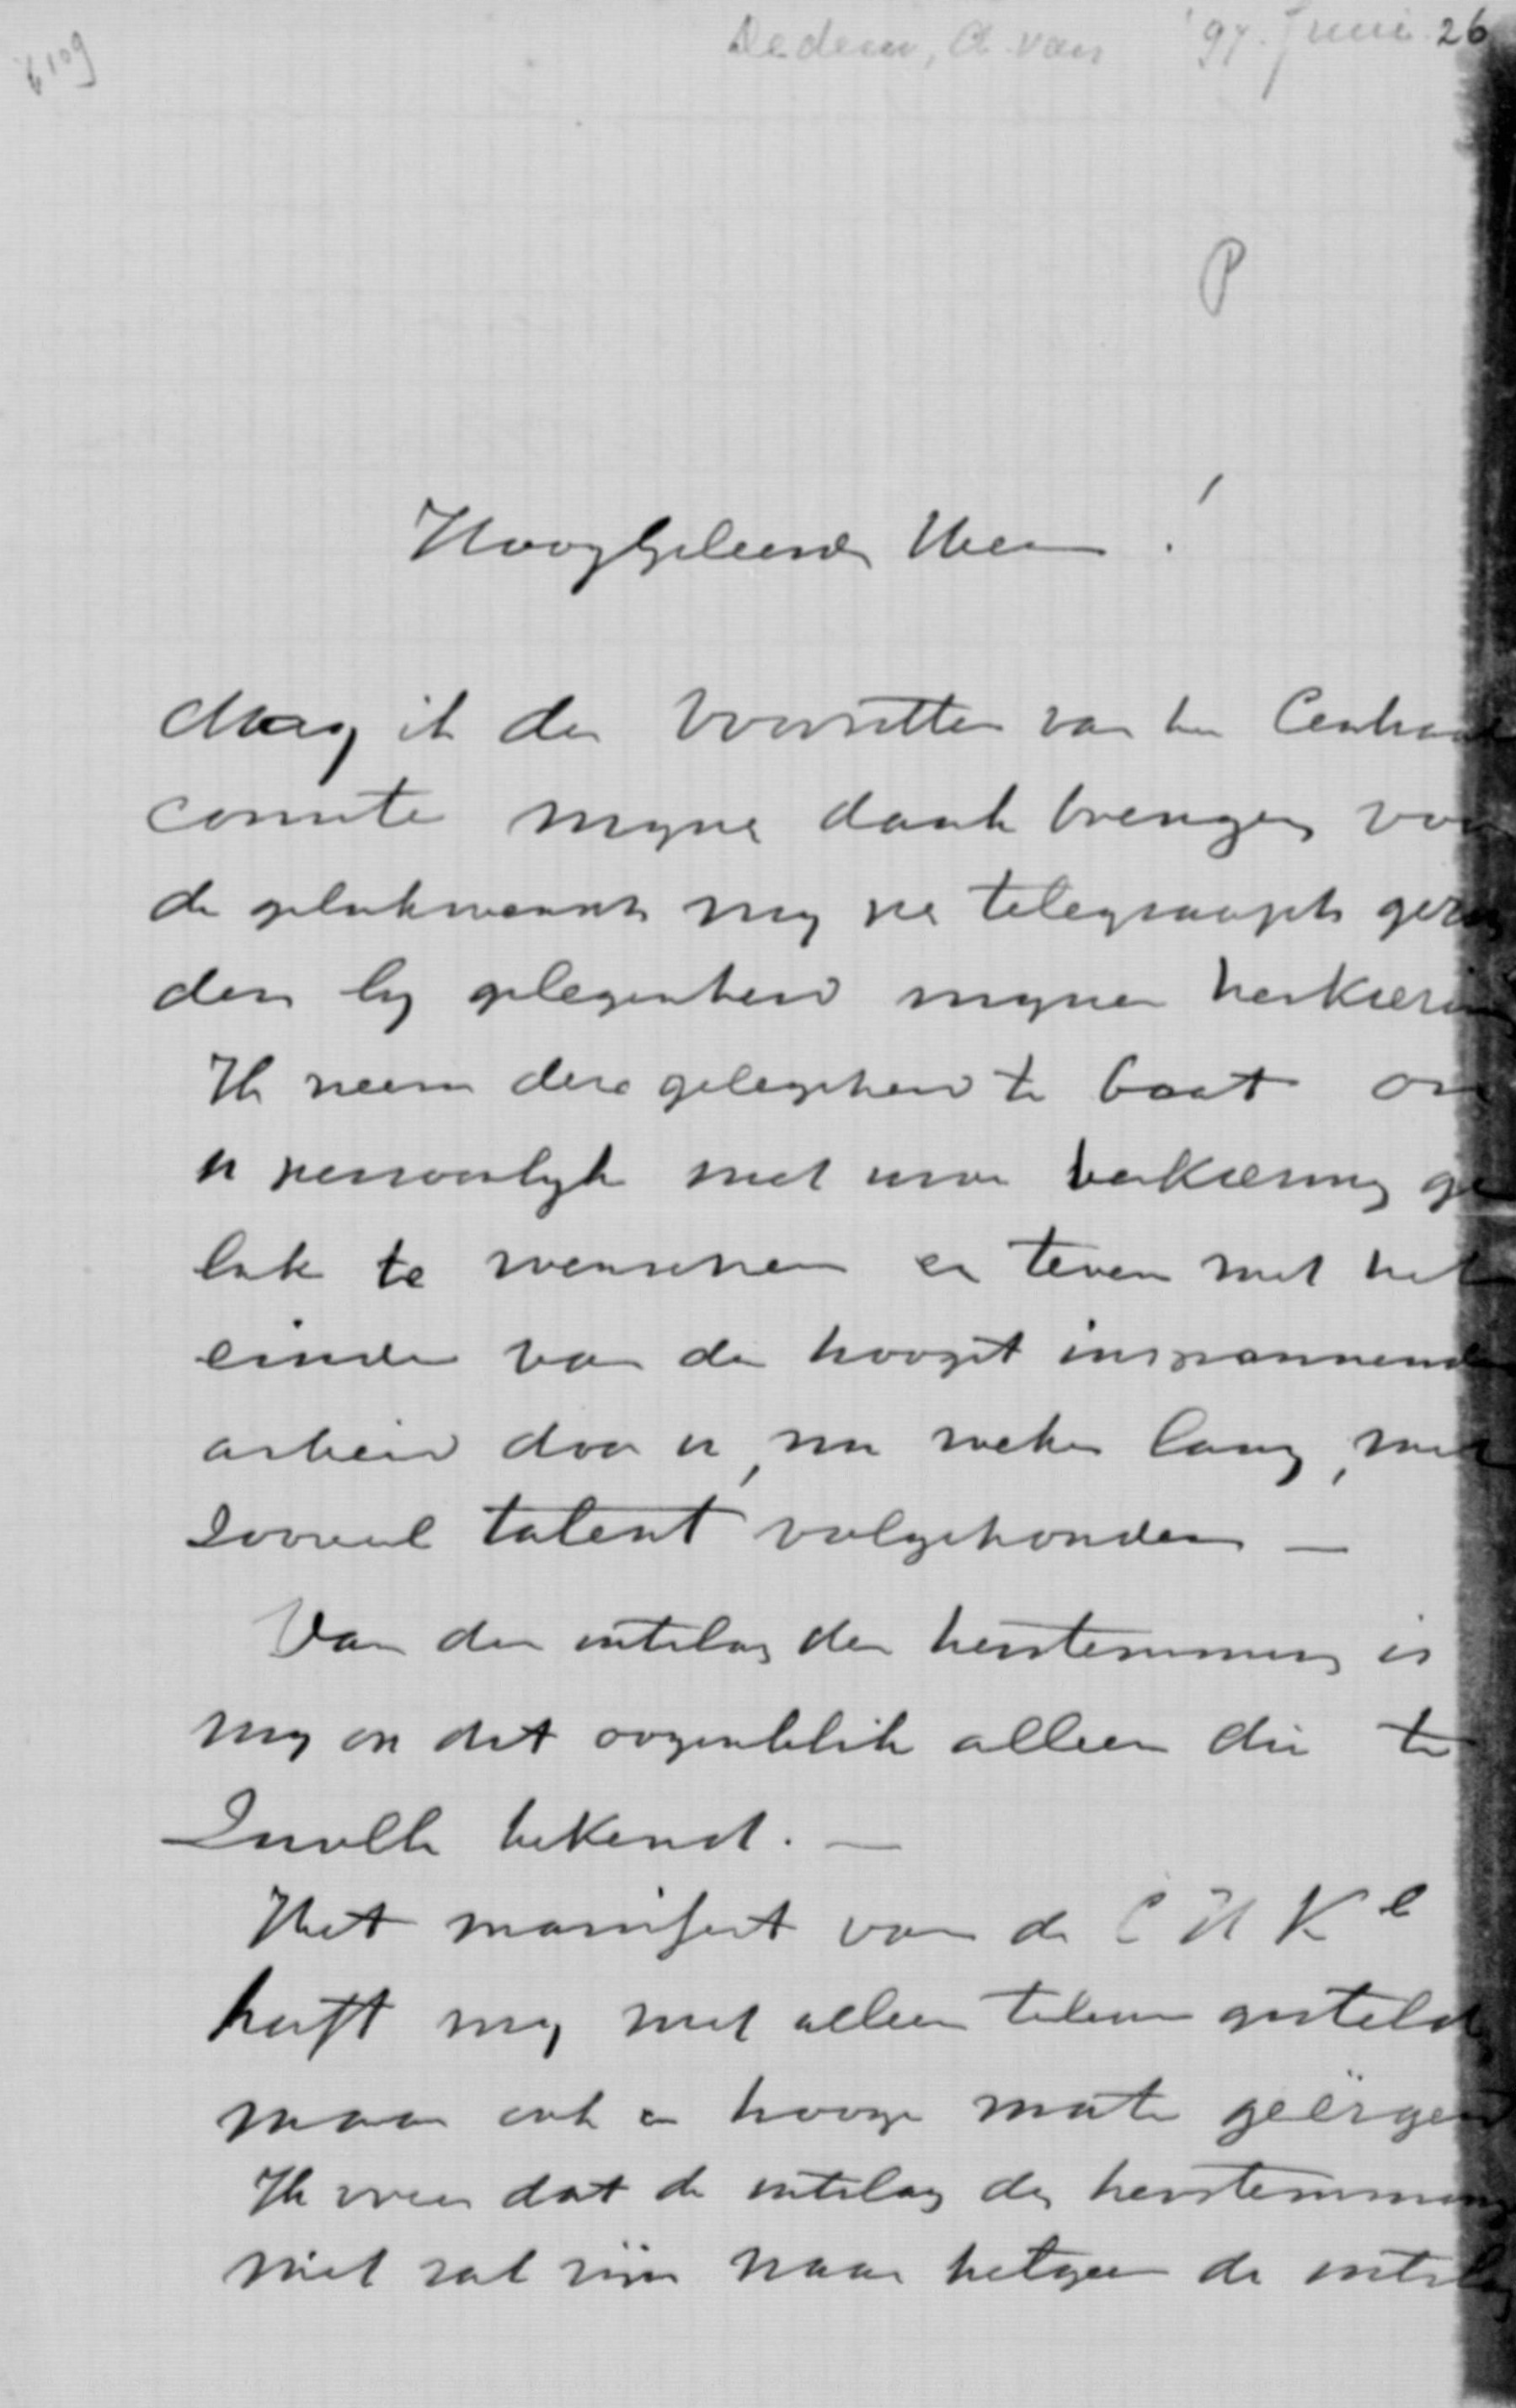 6109
Dedem, A. van '97. Juni 26
P
Hooggeleerde Heer!
Mag ik den Voorzitter van het Centraal
comite mijne dank brengen voor
de gelukwensch my per telegraaph gezon
den by gelegenheid myner herkiezing
Ik neem deze gelegenheid te baat om
u persoonlyk met uwe verkiezing ge
luk te wenschen en tevens met het
einde van de hoogst inspannende
arbeid door u, nu weken lang, met
zooveel talent volgehouden —
Van den uitslag der herstemming is
my op dit oogenblik alleen die te
Zwolle bekend. —
Het manifest van de C H K
heeft my niet alleen teleur gesteld
maar ook in hooge mate geërgerd
Ik vrees dat de uitslag der herstemming
niet zal zijn naar hetgeen de uitslag